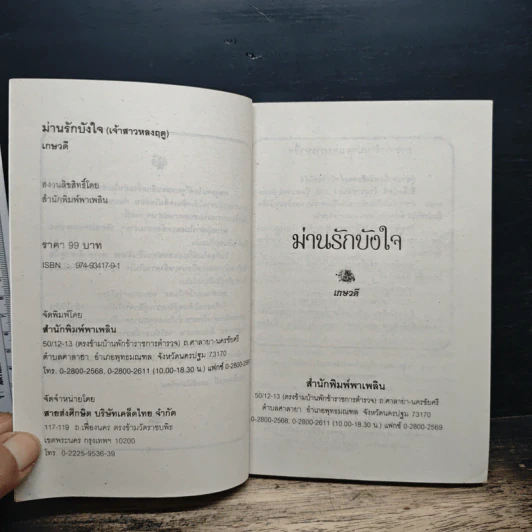 ม่านรักบังใจ (เจ้าสาวหลงฤดู)
เกษวดี
สงวนลิขสิทธิ์โดย
สำนักพิมพ์พาเพลิน
ราคา 99 บาท
ISBN : 974-93417-9-1
จัดพิมพ์โดย
สำนักพิมพ์พาเพลิน
50/12-13 (ตรงข้ามบ้านพักข้าราชการตำรวจ) ถ.ศาลายา-นครชัยศรี
ตำบลศาลายา อำเภอพุทธมณฑล จังหวัดนครปฐม 73170
โทร. 0-2800-2568, 0-2800-2611 (10.00-18.30 น.) แฟกซ์ 0-2800-2569
จัดจำหน่ายโดย
สายส่งศึกษิต บริษัทเคล็ดไทย จำกัด
117-119 ถ.เฟื่องนคร ตรงข้ามวัดราชบพิธ
เขตพระนคร กรุงเทพฯ 10200
โทร. 0-2225-9536-39
ม่านรักบังใจ
เกษวดี
สำนักพิมพ์พาเพลิน
50/12-13 (ตรงข้ามบ้านพักข้าราชการตำรวจ) ถ.ศาลายา-นครชัยศรี
ตำบลศาลายา อำเภอพุทธมณฑล จังหวัดนครปฐม 73170
0-2800-2568, 0-2800-2611 (10.00-18.30 น.) แฟกซ์ 0-2800-2569